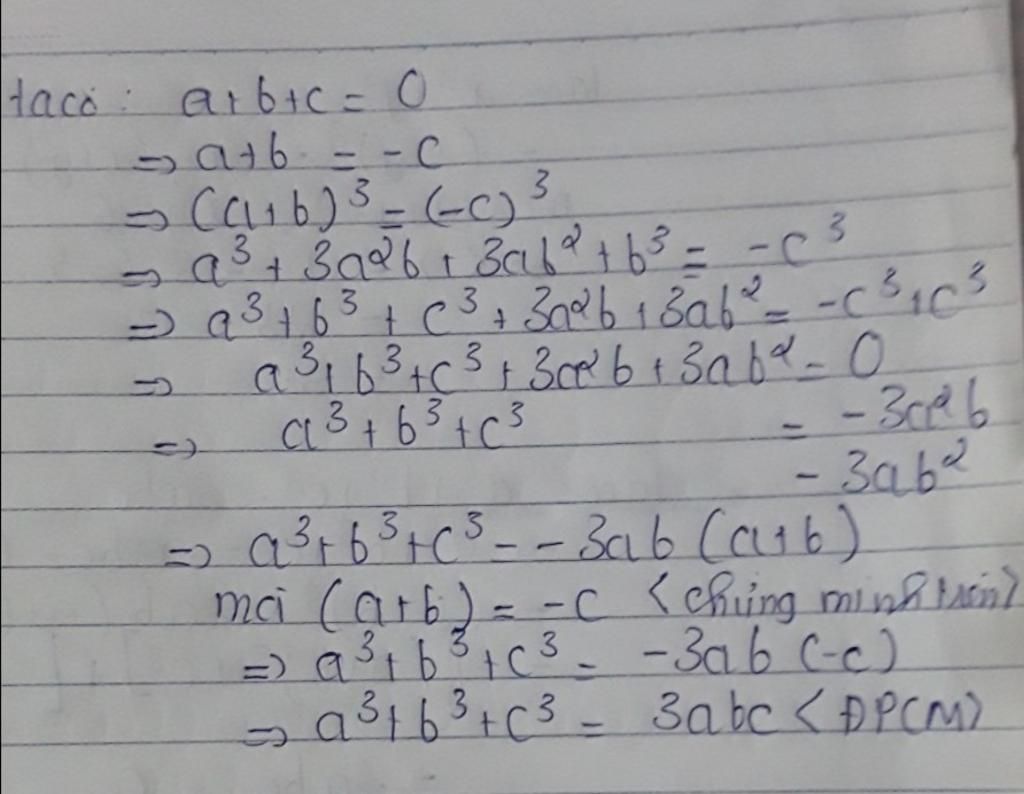 ta có : a+b+c = 0
=> a+b = -c
=> (a+b)³ = (-c)³
=> a³ + 3a²b + 3ab² + b³ = -c³
=> a³ + b³ + c³ + 3a²b + 3ab² = -c³ + c³
=> a³ + b³ + c³ + 3a²b + 3ab² = 0
=> a³ + b³ + c³ = -3a²b
- 3ab²
=> a³ + b³ + c³ = -3ab (a+b)
mà (a+b) = -c <chứng minh trên>
=> a³ + b³ + c³ = -3ab (-c)
=> a³ + b³ + c³ = 3abc <ĐPCM>